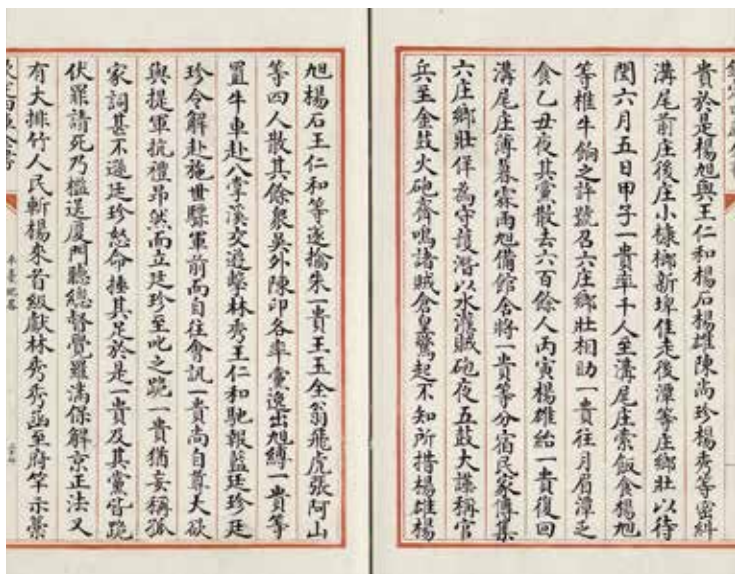 貴於是楊旭與王仁和楊石楊雄陳尚珍楊秀等密糾
溝尾前庄後庄小槺榔新埤佳走後潭等庄鄉壯以待
閏六月五日甲子一貴率千人至溝尾庄索飯食楊旭
等椎牛餉之許號召六庄鄉壯相助一貴往月眉潭乏
食乙丑夜其黨散去六百餘人丙寅楊雄紿一貴復回
溝尾庄薄暮霖雨旭備館舍將一貴等分宿民家傳集
六庄鄉壯佯為守護潛以水灌賊砲夜五鼓大譟稱官
兵至金鼓火砲齊鳴諸賊倉皇驚起不知所措楊雄楊
旭楊石王仁和等遂擒朱一貴王玉全翁飛虎張阿山
等四人散其餘衆吳外陳印各率黨逸出旭縛一貴等
置牛車赴八掌溪交遊擊林秀王仁和馳報藍廷珍廷
珍令解赴施世驃軍前而自往會訊一貴尚自尊大欲
與提軍抗禮昂然而立廷珍至叱之跪一貴猶妄稱孤
家詞甚不遜廷珍怒命捶其足於是一貴及其黨皆跪
伏罪請死乃檻送厦門聽總督覺羅滿保解京正法又
有大排竹人民斬楊來首級獻林秀秀函至府竿示藁
平臺紀畧